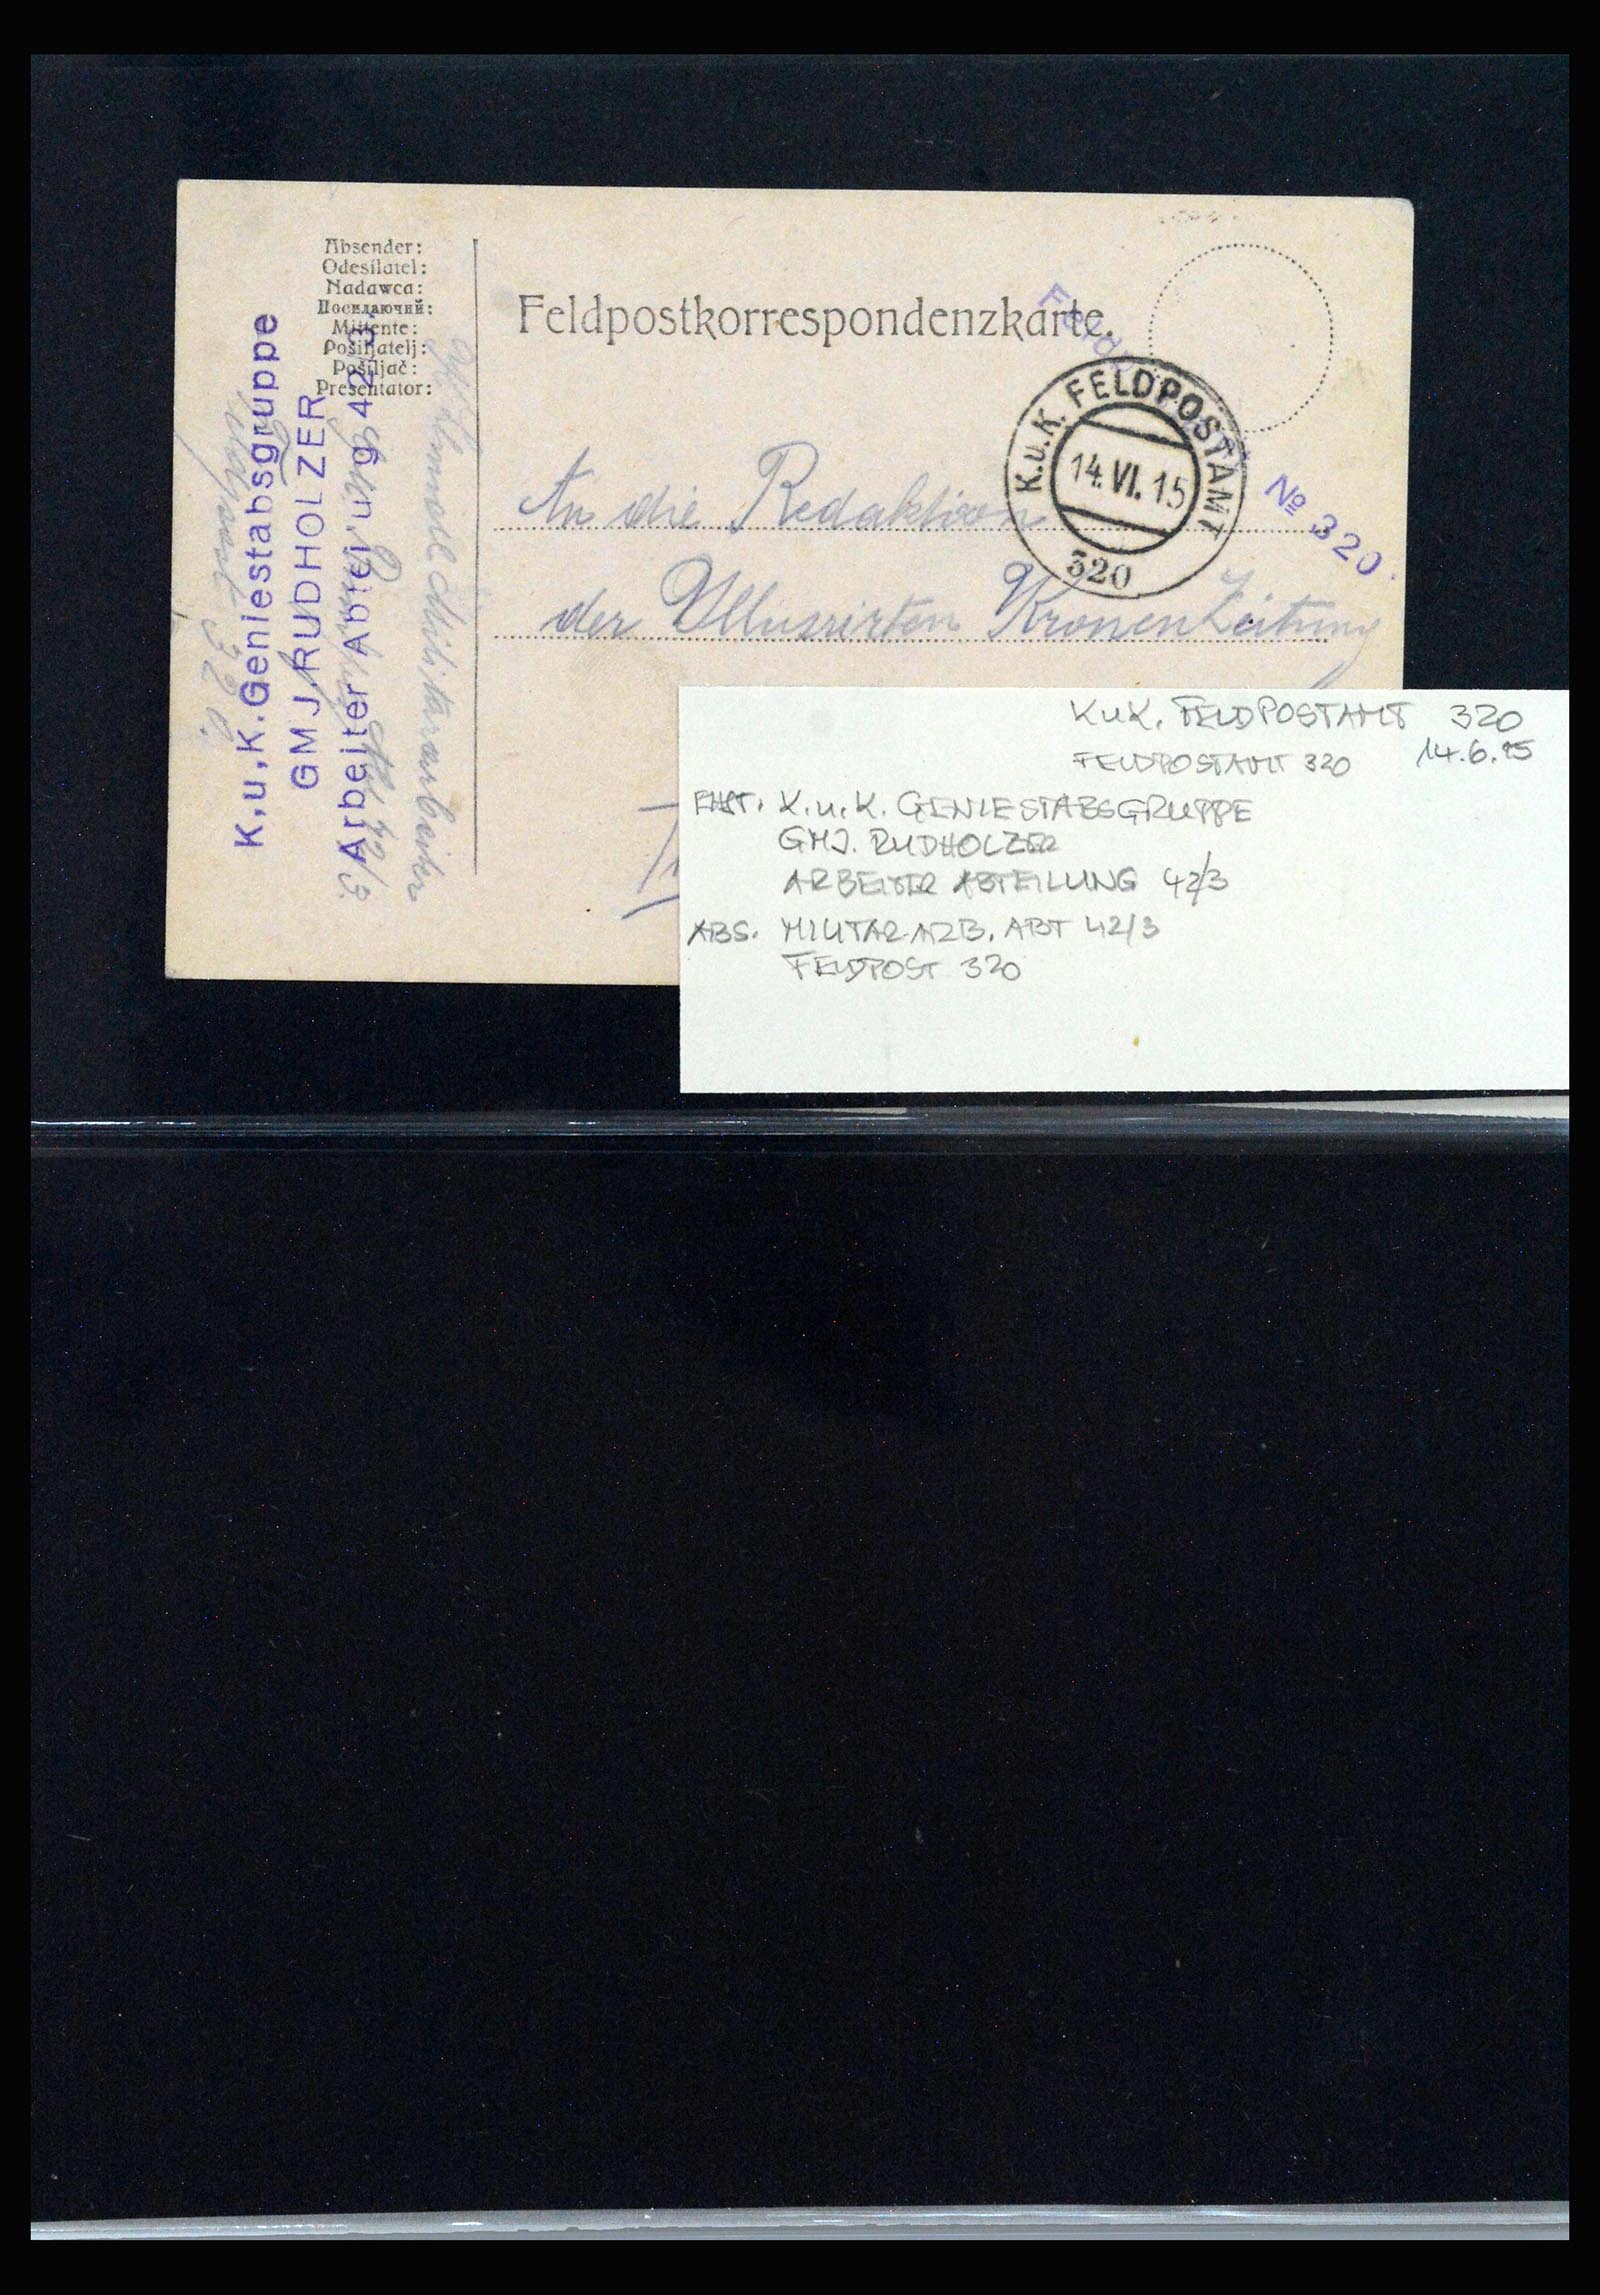 Absender:
Odesílatel:
Nadawca:
Посилаючий:
Mittente:
Pošiljatelj:
Pošiljač:
Presentator:
Feldpostkorrespondenzkarte.
K.u.K. FELDPOSTAMT
14.VI.15
320
№ 320.
An die Redaktion
der Illusrirten Kronen Zeitung
K.u.K.Geniestabsgruppe
GMJ.RUDHOLZER
Arbeiter Abtei'u g 42 3.
Militärarbeiter
42/3
320.
K.u.K. FELDPOSTAMT 320
FELDPOSTAMT 320 14.6.15
K.u.K. GENIESTABSGRUPPE
GMJ. RUDHOLZER
ARBEITER ABTEILUNG 42/3
ABS. MILITAR-ARB. ABT 42/3
FELDPOST 320